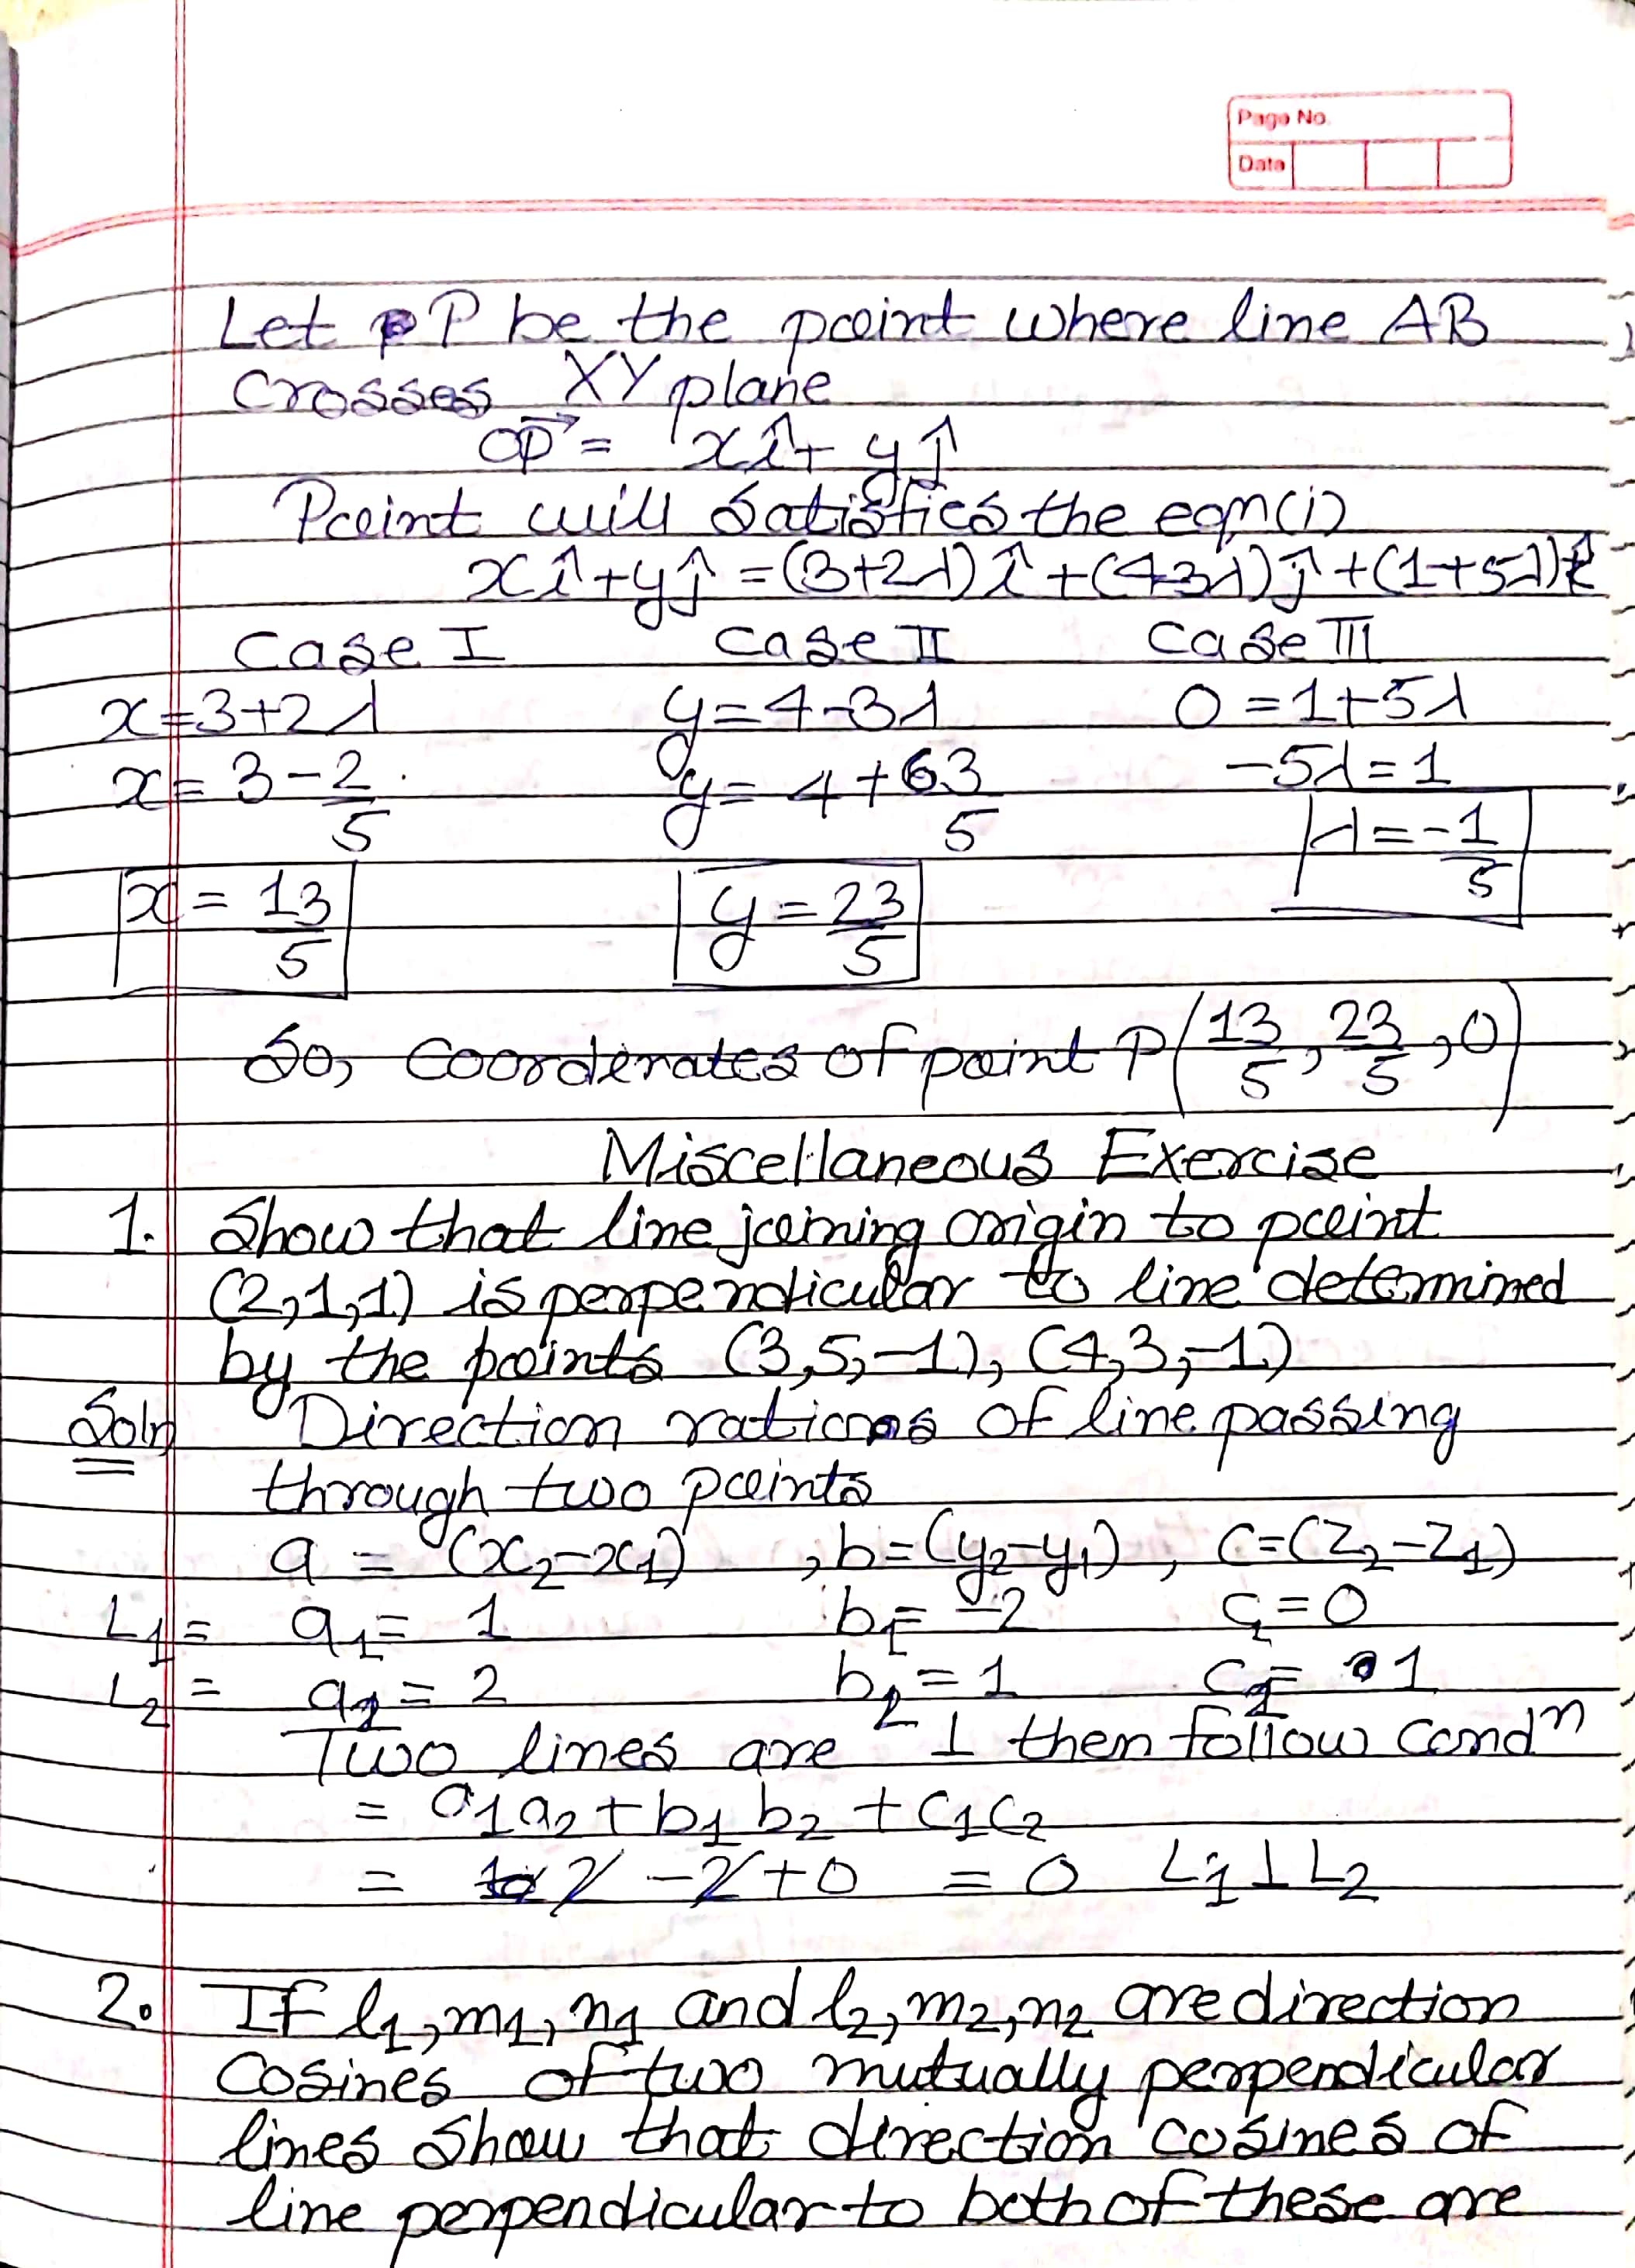 Page No.
Date
Let P be the point where line AB
crosses XY plane
OP⃗ = xî + yĵ
Point will satisfies the eqn(i)
xî + yĵ = (3+2λ)î + (4-3λ)ĵ + (1+5λ)k̂
Case I Case II Case III
x = 3+2λ y = 4-3λ 0 = 1+5λ
x = 3 - 2/5 y = 4 + 3/5 -5λ = 1
λ = -1/5
x = 13/5 y = 23/5
So, Coordinates of point P(13/5, 23/5, 0)
Miscellaneous Exercise
1. Show that line joining origin to point
(2,1,1) is perpendicular to line determined
by the points (3,5,-1), (4,3,-1)
Soln Direction rations of line passing
through two points
a = (x₂-x₁) , b = (y₂-y₁) , c = (z₂-z₁)
L₁ = a₁ = 1 b₁ = -2 c₁ = 0
L₂ = a₂ = 2 b₂ = 1 c₂ = 1
Two lines are ⊥ then follow condⁿ
= a₁a₂ + b₁b₂ + c₁c₂
= 2 - 2 + 0 = 0 L₁ ⊥ L₂
2. If l₁, m₁, n₁ and l₂, m₂, n₂ are direction
cosines of two mutually perpendicular
lines show that direction cosines of
line perpendicular to both of these are